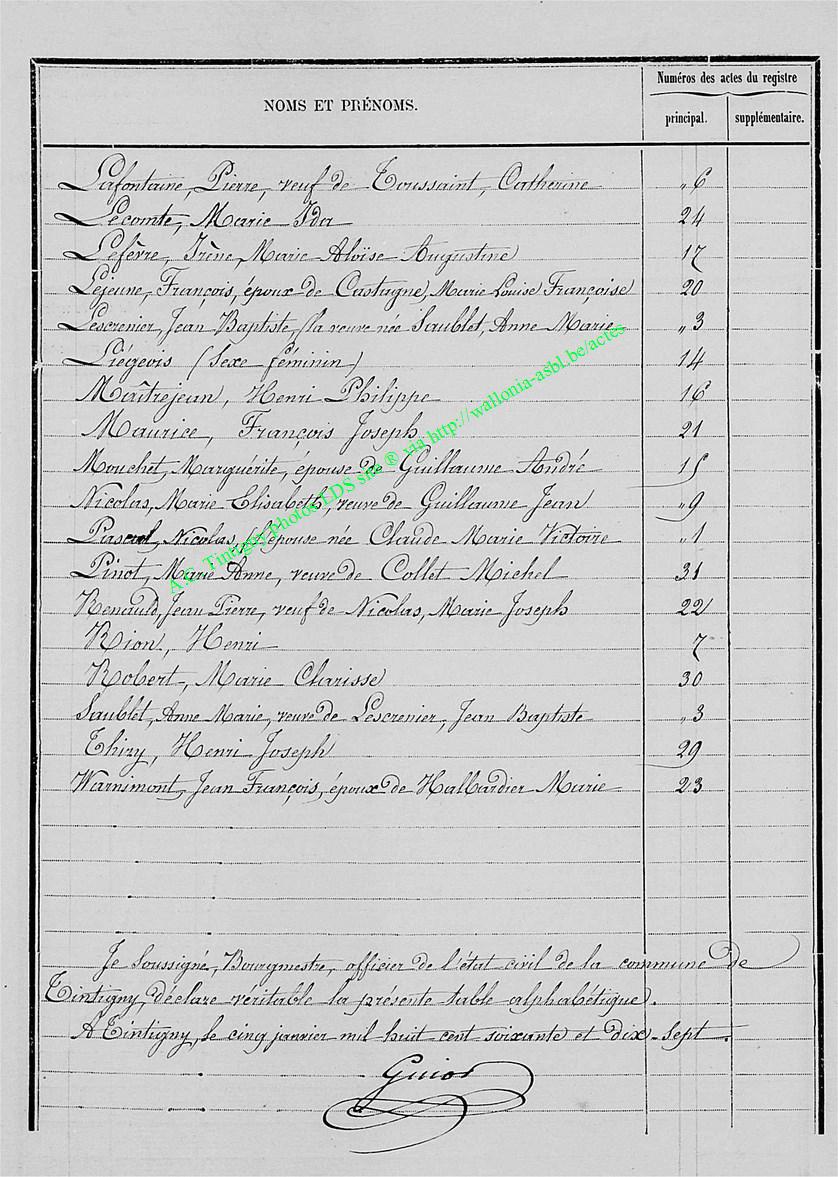 NOMS ET PRÉNOMS.
Numéros des actes du registre
principal. supplémentaire.
Lafontaine, Pierre, veuf de Toussaint, Catherine „6
Lecomte, Marie Ida 24
Lefèvre, Irène, Marie Aloïse Augustine 17
Lejeune, François, époux de Castagne, Marie Louise Françoise 20
Lescrenier, Jean Baptiste, (la veuve née Saublet, Anne Marie „3
Liégeois (Sexe féminin) 14
Maîtrejean, Henri Philippe 16
Maurice, François Joseph 21
Mouchet, Marguérite, épouse de Guillaume André 15
Nicolas, Marie Elisabeth, veuve de Guillaume Jean „9
Pascal, Nicolas, (l'épouse née Claude Marie Victoire 1
Pinot, Marie Anne, veuve de Collet Michel 31
Renauld, Jean Pierre, veuf de Nicolas, Marie Joseph 22
Rion, Henri 7
Robert, Marie Clarisse 30
Saublet, Anne Marie, veuve de Lescrenier, Jean Baptiste „3
Thiry, Henri Joseph 29
Warnimont, Jean François, époux de Halbardier Marie 23
Je soussigné, Bourgmestre, officier de l'état civil de la commune de
Tintigny, déclare veritable la présente table alphabétique.
A Tintigny, le cinq janvier mil huit cent soixante et dix-sept.
Guiot
A.C. Tintigny photos LDS site ® via http://wallonia-asbl.be/actes